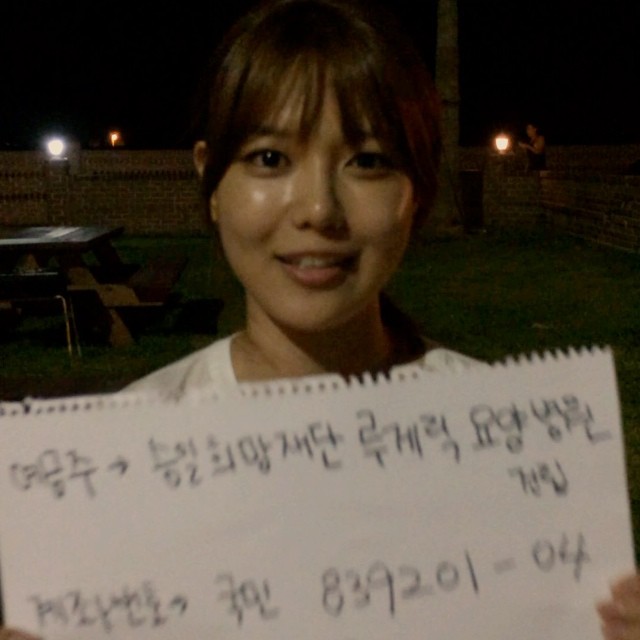 예금주 → 승일희망재단 루게릭 요양병원
건립
계좌번호 → 국민 839201-04